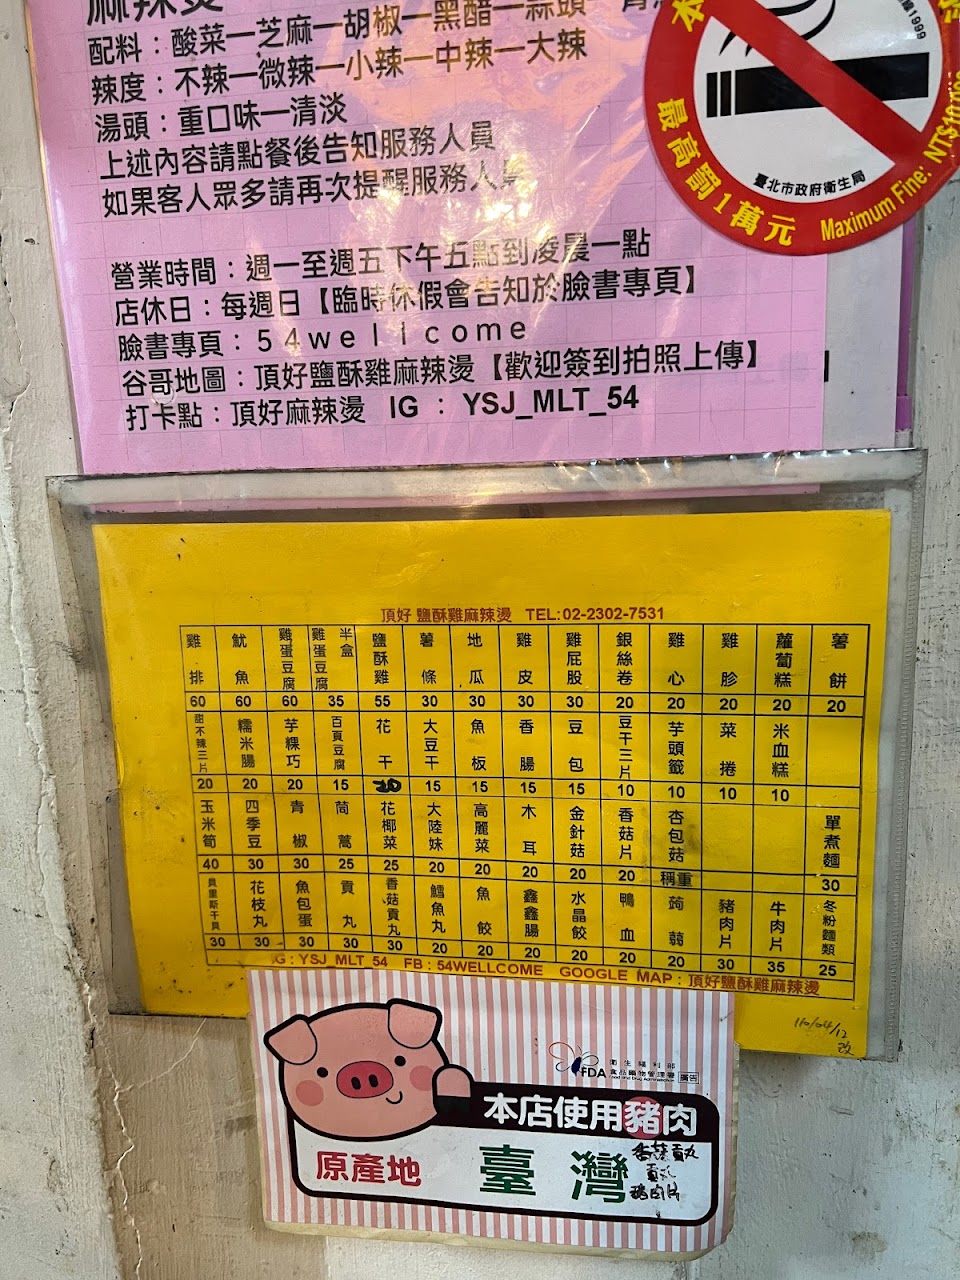 麻辣燙
配料：酸菜—芝麻—胡椒—黑醋—蒜頭—
辣度：不辣—微辣—小辣—中辣—大辣
湯頭：重口味—清淡
上述內容請點餐後告知服務人員
如果客人眾多請再次提醒服務人員
營業時間：週一至週五下午五點到凌晨一點
店休日：每週日【臨時休假會告知於臉書專頁】
臉書專頁：54wellcome
谷哥地圖：頂好鹽酥雞麻辣燙【歡迎簽到拍照上傳】
打卡點：頂好麻辣燙 IG : YSJ_MLT_54
1999
臺北市政府衛生局
最高罰1萬元 Maximum Fine: NT$10
頂好 鹽酥雞麻辣燙 TEL:02-2302-7531
雞排 魷魚 雞蛋豆腐 雞蛋豆腐半盒 鹽酥雞 薯條 地瓜 雞皮 雞屁股 銀絲卷 雞心 雞胗 蘿蔔糕 薯餅
60 60 60 35 55 30 30 30 30 20 20 20 20 20
甜不辣三片 糯米腸 芋粿巧 百頁豆腐 花干 大豆干 魚板 香腸 豆包 豆干三片 芋頭籤 菜捲 米血糕
20 20 20 15 20 15 15 15 15 10 10 10 10
玉米筍 四季豆 青椒 茼蒿 花椰菜 大陸妹 高麗菜 木耳 金針菇 香菇片 杏包菇 單煮麵
40 30 30 25 25 20 20 20 20 20 稱重 30
貝里斯干貝 花枝丸 魚包蛋 貢丸 香菇貢丸 鱈魚丸 魚餃 鑫鑫腸 水晶餃 鴨血 蒟蒻 豬肉片 牛肉片 冬粉麵類
30 30 30 30 30 20 20 20 20 20 20 30 35 25
IG : YSJ_MLT_54 FB : 54WELLCOME GOOGLE MAP : 頂好鹽酥雞麻辣燙
110/04/12
改
衛生福利部
FDA 食品藥物管理署 廣告
Food and Drug Administration
本店使用豬肉
原產地 臺灣
香菇貢丸
貢丸
豬肉片